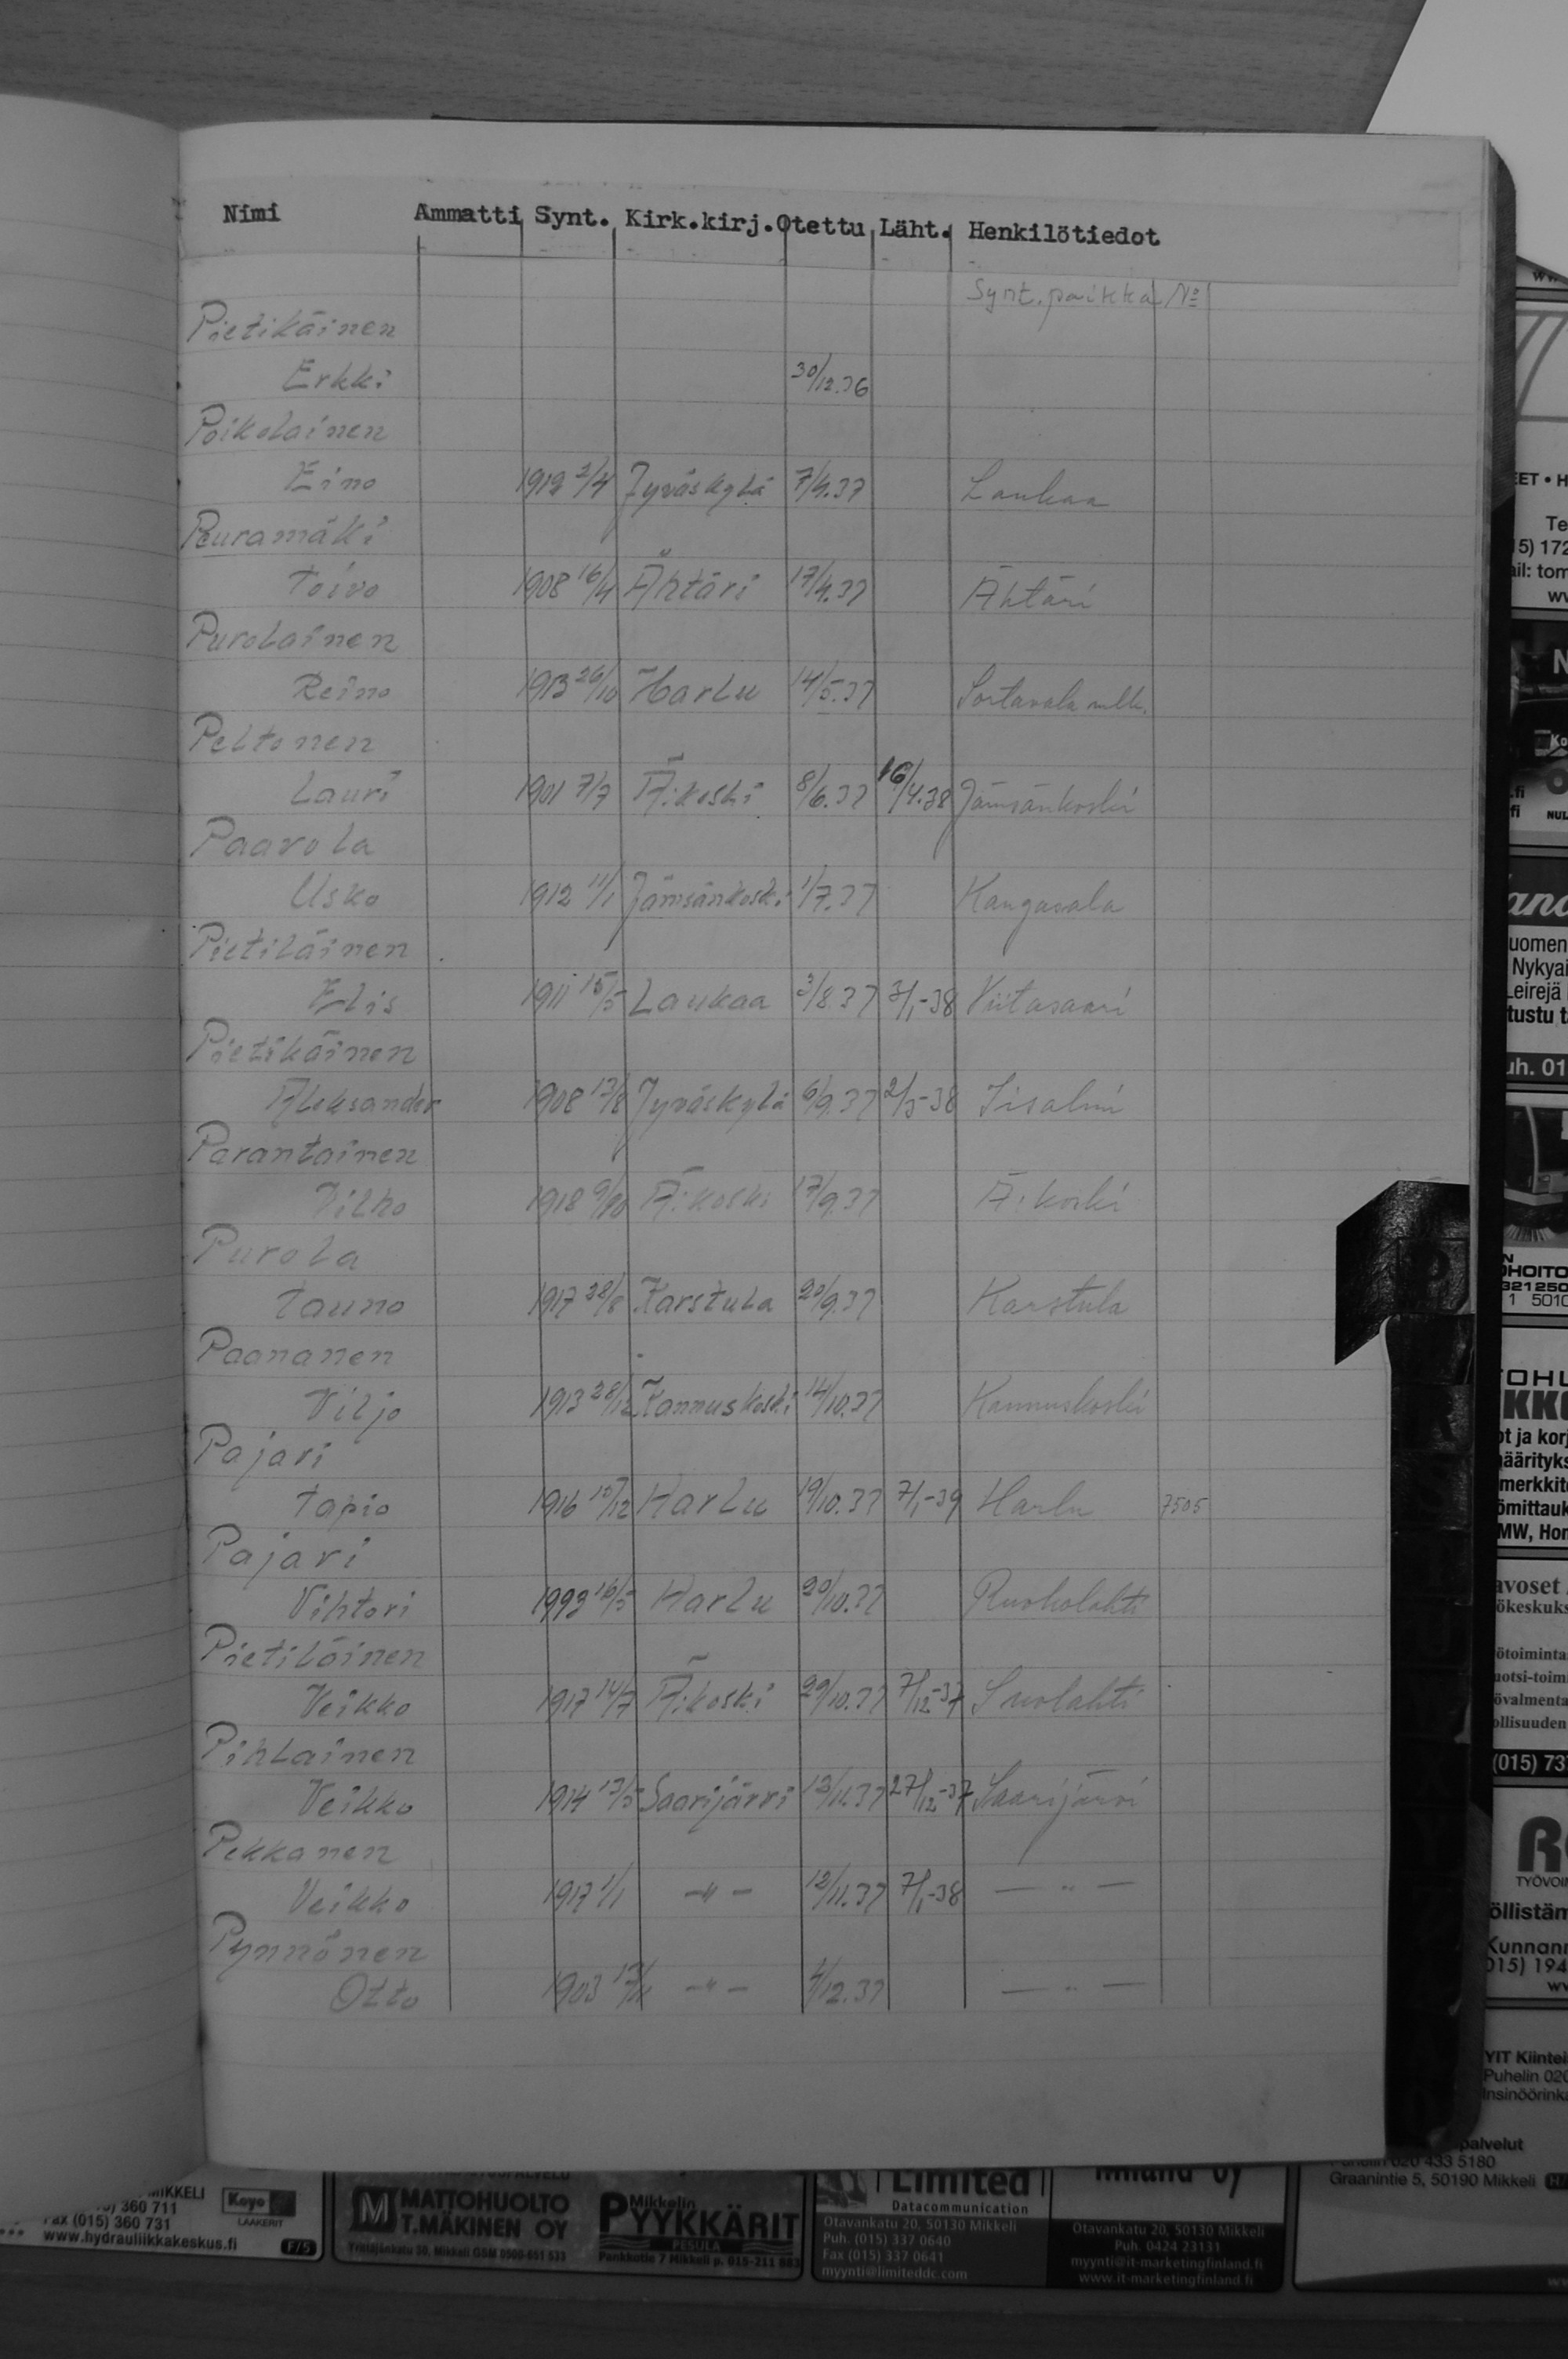 Nimi Ammatti Synt. Kirk.kirj. Otettu Läht. Henkilötiedot
Synt.paikka №
Pietikäinen
Erkki 30/12.36
Poikolainen
Eino 1919 2/4 Jyväskylä 7/4.37 Laukaa
Peuramäki
Toivo 1908 16/4 Ähtäri 17/4.37 Ähtäri
Purolainen
Reino 1913 26/10 Harlu 14/5.37 Sortavala mlk.
Peltonen
Lauri 1901 7/7 Ä:koski 8/6.37 16/4.38 Jämsänkoski
Paavola
Usko 1912 11/1 Jämsänkoski 1/7.37 Kangasala
Pietiläinen
Elis 1911 15/5 Laukaa 3/8.37 3/1-38 Viitasaari
Pietikäinen
Aleksander 1908 13/8 Jyväskylä 6/9.37 2/5-38 Iisalmi
Parantainen
Vilho 1918 9/10 Ä:koski 17/9.37 Ä:koski
Purola
Tauno 1917 28/8 Karstula 20/9.37 Karstula
Paananen
Viljo 1913 28/12 Kannuskoski 14/10.37 Kannuskoski
Pajari
Tapio 1916 15/12 Harlu 19/10.37 7/1-39 Harlu 7505
Pajari
Vihtori 16/5 Harlu 20/10.37 Ruokolahti
Pietiläinen
Veikko 1917 14/7 Ä:koski 29/10.37 7/12-37 Suolahti
Pihlainen
Veikko 1914 13/5 Saarijärvi 12/11.37 27/12-37 Saarijärvi
Pekkanen
Veikko 1917 1/1 -"- 12/11.37 7/1-38 -"-
Pynnönen
Otto 1903 17/11 -"- 4/12.37 -"-
P
MIKKELI
360 711
Fax (015) 360 731
www.hydrauliikkakeskus.fi
Koyo
LAAKERIT
F/5
MATTOHUOLTO
T.MÄKINEN OY
Yrittäjänkatu 30, Mikkeli GSM 0500-651 533
Mikkelin
PYYKKÄRIT
PESULA
Pankkotie 7 Mikkeli p. 015-211 883
Limited
Datacommunication
Otavankatu 20, 50130 Mikkeli
Puh. (015) 337 0640
Fax (015) 337 0641
myynti@limiteddc.com
Otavankatu 20, 50130 Mikkeli
Puh. 0424 23131
myynti@it-marketingfinland.fi
www.it-marketingfinland.fi
palvelut
Puhelin 020 433 5180
Graanintie 5, 50190 Mikkeli
YIT Kiintei
Puhelin 020
Insinöörink